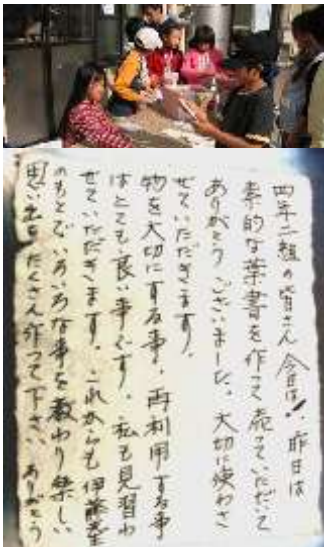 四年二組の皆さん 今日は! 昨日は
素的な葉書を作って売っていただいて
ありがとうございました。大切に使わさ
せていただきます。
物を大切にする事、再利用する事
はとても良い事です。私も見習わ
せていただきます。これからも伊藤先生
のもとでいろいろな事を教わり楽しい
思い出をたくさん作って下さい。ありがとう